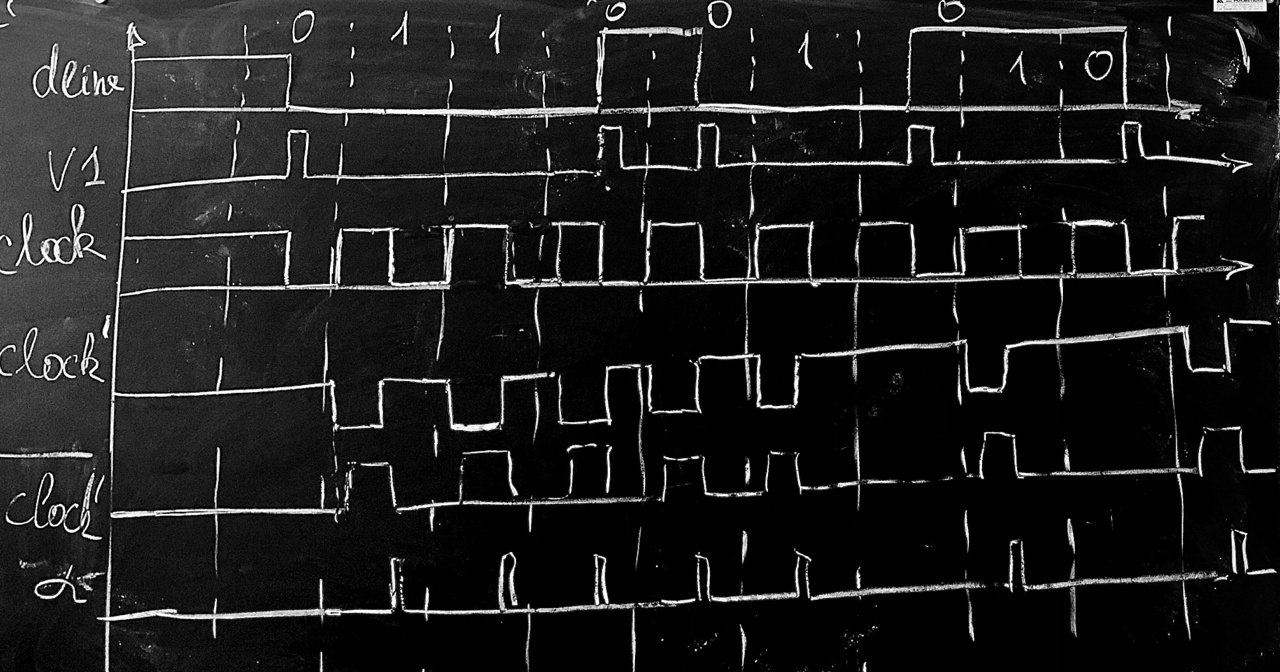 0 1 1 0 0 1 0 1 0
dline
V1
clock
clock'
clock'
α